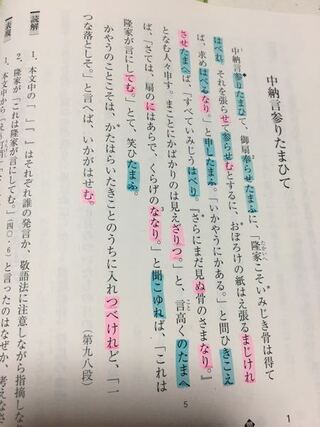 中納言参りたまひて
中納言参りたまひて、御扇奉らせたまふに、「隆家こそいみじき骨は得て
はべれ。それを張らせて参らせむとするに、おぼろけの紙はえ張るまじけれ
ば、求めはべるなり。」と申したまふ。「いかやうにかある。」と問ひきこえ
させたまへば、「すべていみじうはべり。『さらにまだ見ぬ骨のさまなり。』
となむ人々申す。まことにかばかりのは見えざりつ。」と、言高くのたまへ
ば、「さては、扇のにはあらで、くらげのななり。」と聞こゆれば、「これは
隆家が言にしてむ。」とて、笑ひたまふ。
かやうのことこそは、かたはらいたきことのうちに入れつべけれど、「一
つな落としそ。」と言へば、いかがはせむ。
(第九八段)
読解
1. 本文中の「 」「 」はそれぞれ誰の発言か、敬語法に注意しながら指摘しな
2. 隆家が「これは隆家が言にしてむ。」(四〇・6)と言ったのはなぜか、考えなさ
表現
1. 本文中から
5
1